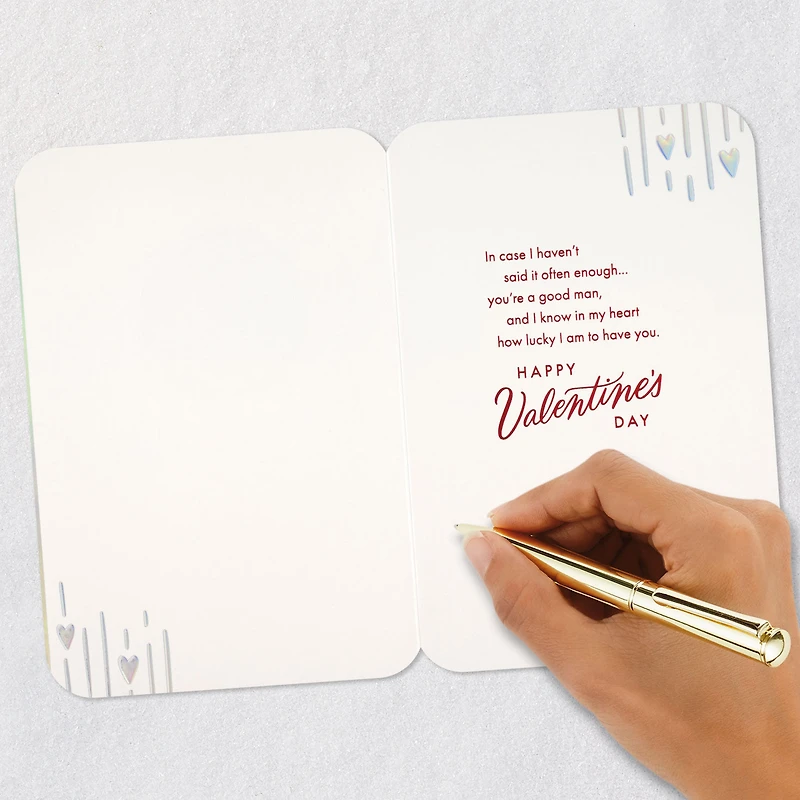 In case I haven't
said it often enough...
you're a good man,
and I know in my heart
how lucky I am to have you.
HAPPY
Valentine's
DAY